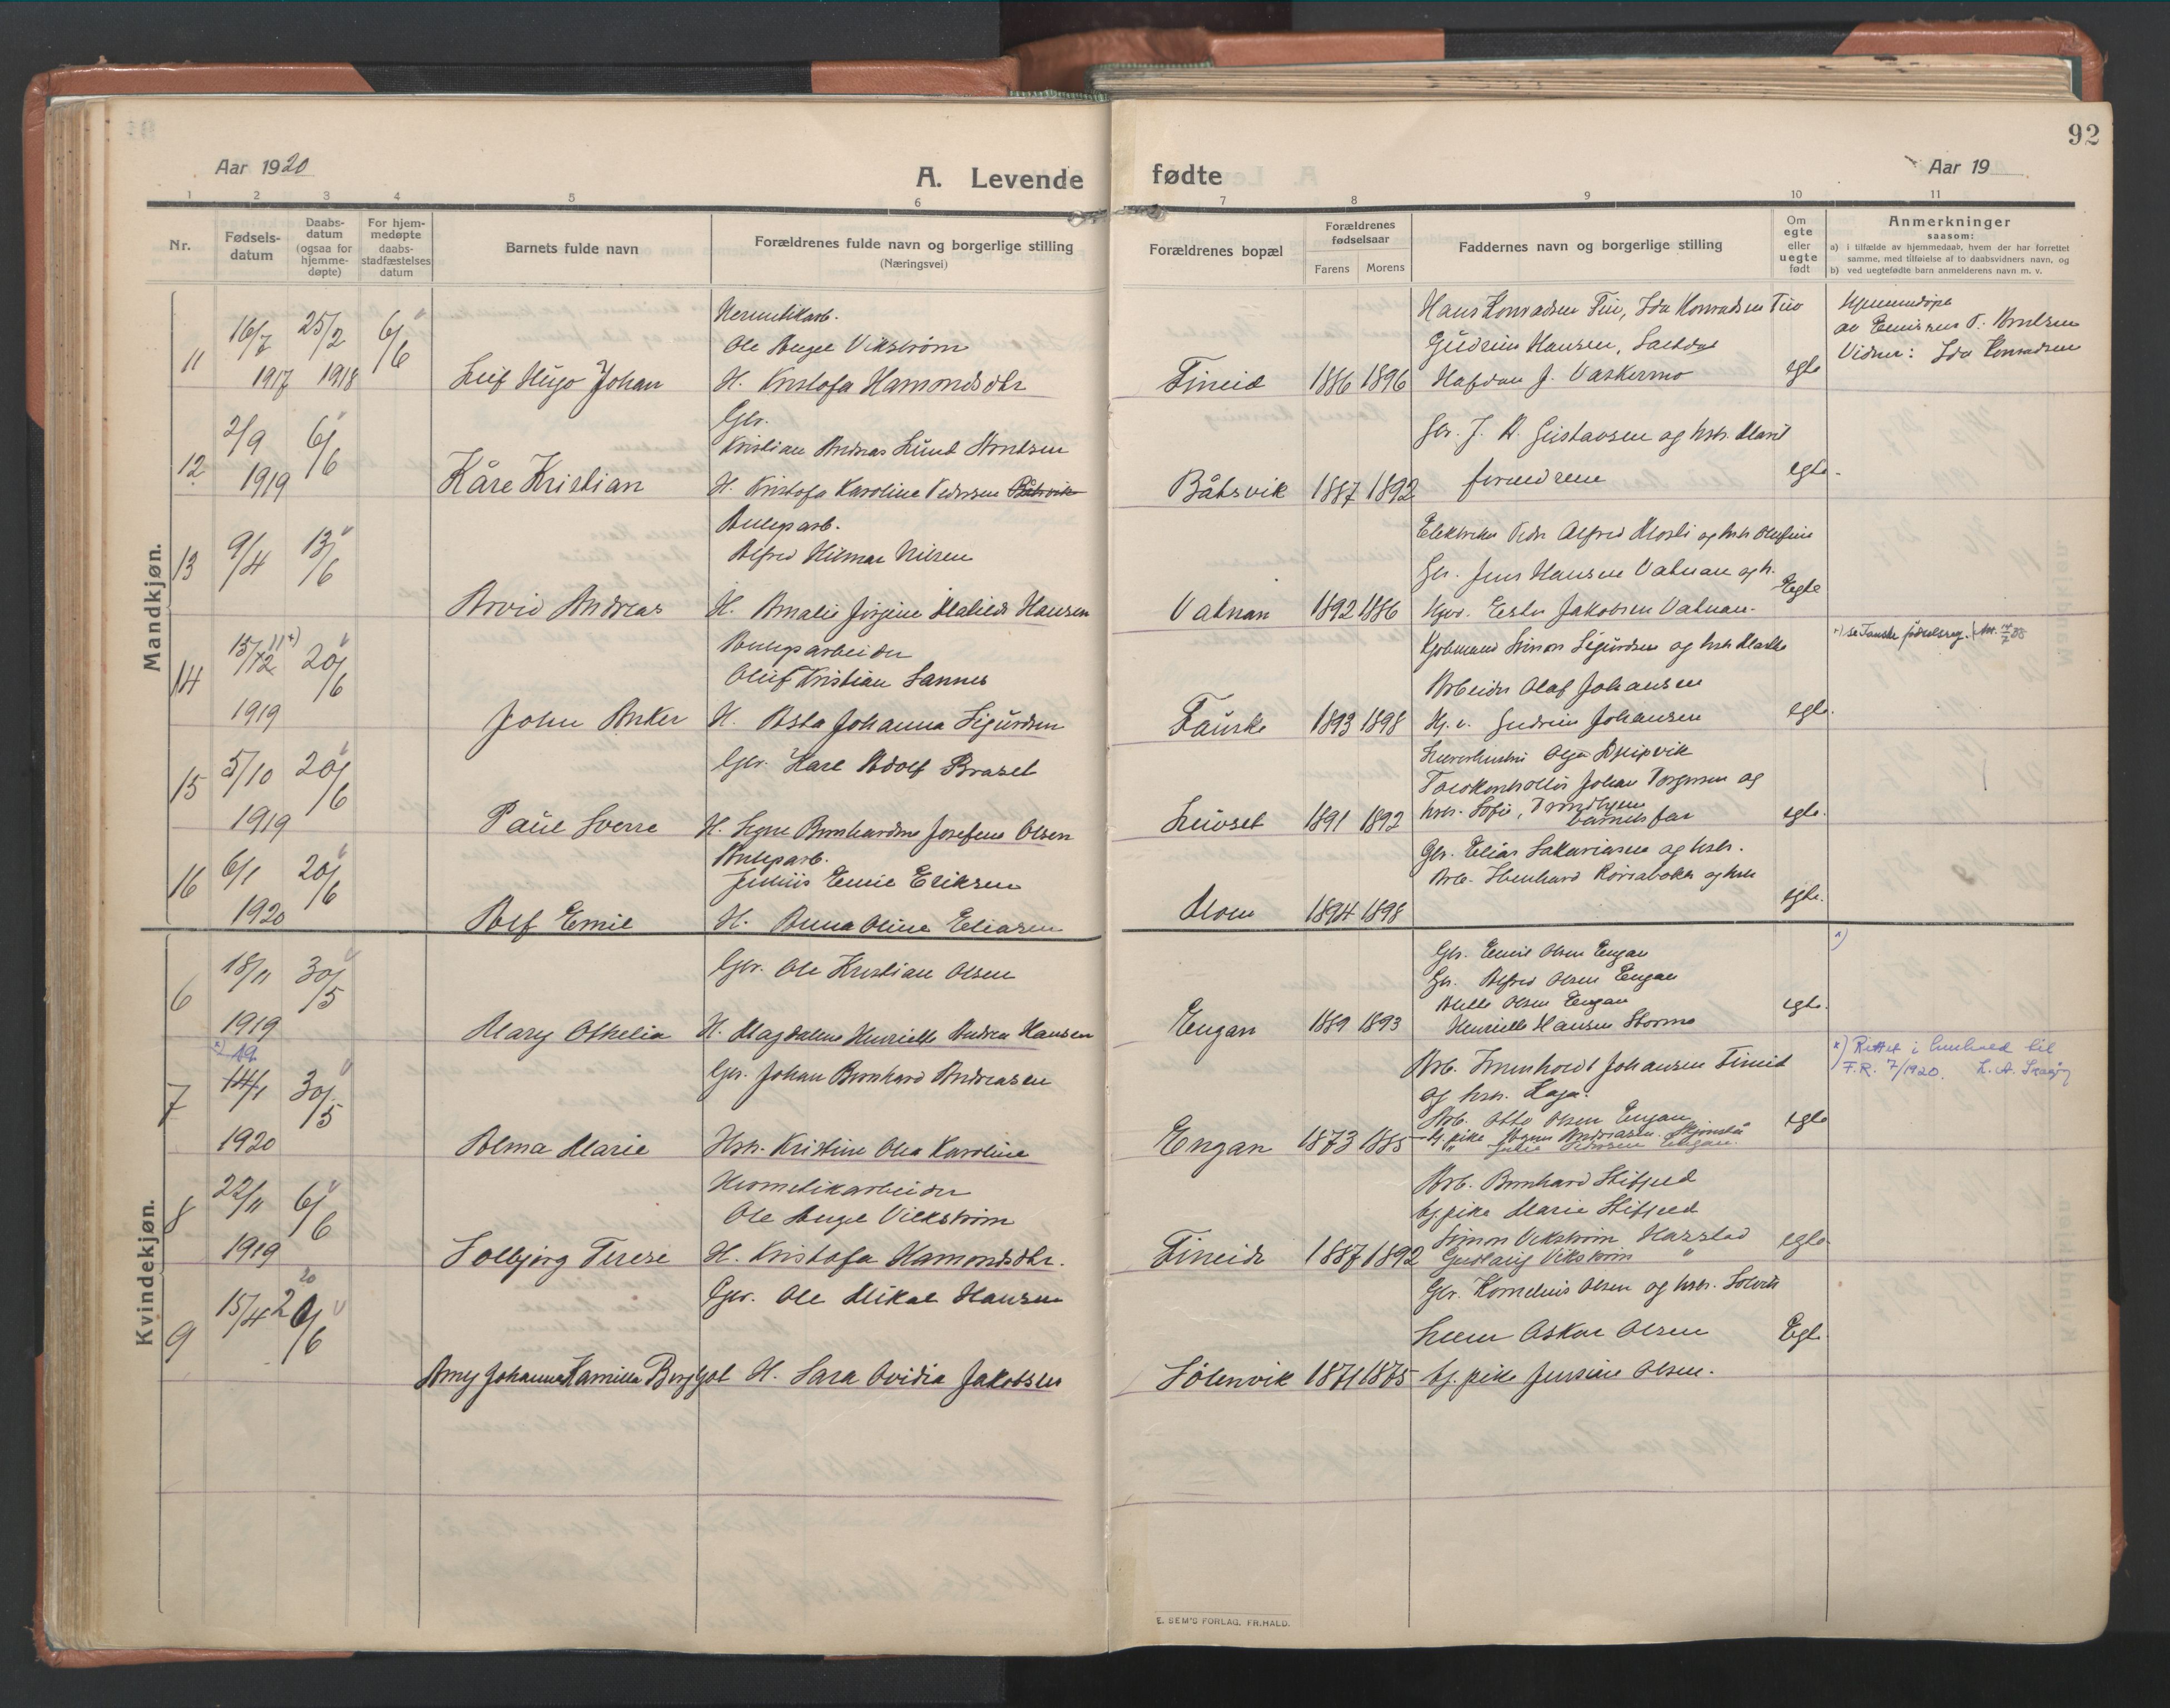 92
Aar 1920
A. Levende fødte
Aar 19
1 2 3 4 5 6 7 8 9 10 11
Nr.
Fødsels-
datum
Daabs-
datum
(ogsaa for
hjemme-
døpte)
For hjem-
medøpte
daabs-
stadfæstelses
datum
Barnets fulde navn
Forældrenes fulde navn og borgerlige stilling
(Næringsvei)
Forældrenes bopæl
Forældrenes
fødselsaar
Farens Morens
Faddernes navn og borgerlige stilling
Om
egte
eller
uegte
født
Anmerkninger
saasom:
a) i tilfælde av hjemmedaab, hvem der har forrettet
samme, med tilføielse af to daabsvidners navn, og
b) ved uegtefødte barn anmelderens navn m. v.
Mandkjøn.
11 16/7 1917 25/2 1918 6/6
Leif Hugo Johan
Hermetikarb.
Ole Angel Vikstrøm
H. Kristofa Hamondsdtr
Fineid 1886 1896
Hans Konradsen Fin, Ida Konradsen
Gudrun Hansen, Saltdal
Hafdan J. Vaskermo
egte
Hjemmedøpt
av Emissær P. Arntsen
Vidner: Ida Konradsen
12 2/9 1919 6/6
Kåre Kristian
Gbr.
Kristian Andreas Lund Arntsen
H. Kristofa Karoline Pedersen Båtsvik
Båtsvik 1887 1892
Gbr. J. A. Gustavsen og hstr. Marit
foreldrene
egte.
13 9/4 13/6
Arvid Andreas
Anlegsarb.
Alfred Hilmar Nilsen
H. Amalie Jørgine Matilde Hansen
Vatnan 1892 1886
Elektriker Peder Alfred Mosli og hstr Olufine
Gbr. Jens Hansen Vatnan og h.
Ester Jakobsen Vatnan.
Egte
14 15/12 11 +) 1919 20/6
John Anker
Anlegsarbeider
Oluf Kristian Sannes
H. Asta Johanna Sigurdsen
Fauske 1893 1898
Kjøbmand Simon Sigurdsen og hstr
Arbeider Olaf Johansen
Hj. v. Gudrun Johansen
egte.
+) se Fauske fødselsreg.
15 5/10 1919 20/6
Paul Sverre
Gbr. Karl Adolf Braset
H. Signe Bernhardine Josefine Olsen
Leivset 1891 1892
Lærerhustru Olga Djupvik
Toldkontrollør Johan Torgersen og
hstr. Sofie, Trondhjem
barnets far
egte.
16 6/1 1920 20/6
Alf Emil
Anlegsarb.
Julius Emil Eriksen
H. Anna Oline Eliasen
Moen 1894 1898
Gbr. Elias Sakariasen og hstr.
egte.
Kvindekjøn.
6 18/11 1919 30/5
Mary Othelia
Gbr. Ole Kristian Olsen
H. Magdalene Henriette Andrea Hansen
Engan 1889 1893
Gbr. Emil Olsen Engan
Gbr. Alfred Olsen Engan
Olsen Engan
Henriette Hansen Stormo
egte.
x)
7 x) 19 14/1 1920 30/5
Alma Marie
Gbr. Johan Bernhard Andreasen
Hstr. Kristine Olea Karoline
Engan 1873 1885
Arb. Johansen Fineid
og hstr. Kaja.
Arb. Otto Olsen Engan
Andreasen
Julie Pedersen Engan.
egte
x) Rettet i henhold til
F.R. 7/1920.
8 22/11 1919 6/6
Solbjørg Terese
Hermetikarbeider
Ole Angel Vikstrøm
H. Kristofa Hamondsdtr.
Fineide 1887 1892
Arb. Bernhard Stifjeld
hj. pike Marie Stifjeld
Simon Vikstrøm Harstad
Gudlaug Vikstrøm "
egte
9 15/4 20/6 20
Amy Johanna Kamilla Bergljot
Gbr. Ole Mikal Hansen
H. Sara Ovidia Jakobsen
Sölenvik 1871 1875
Gbr. Kornelius Olsen og hstr.
Askar Olsen
hj. pike Jensine Olsen.
Egte.
E. SEM'S FORLAG, FR.HALD.